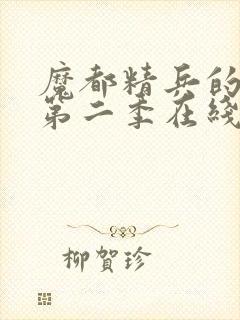 魔都精兵的
第二季在綫
柳賀珍